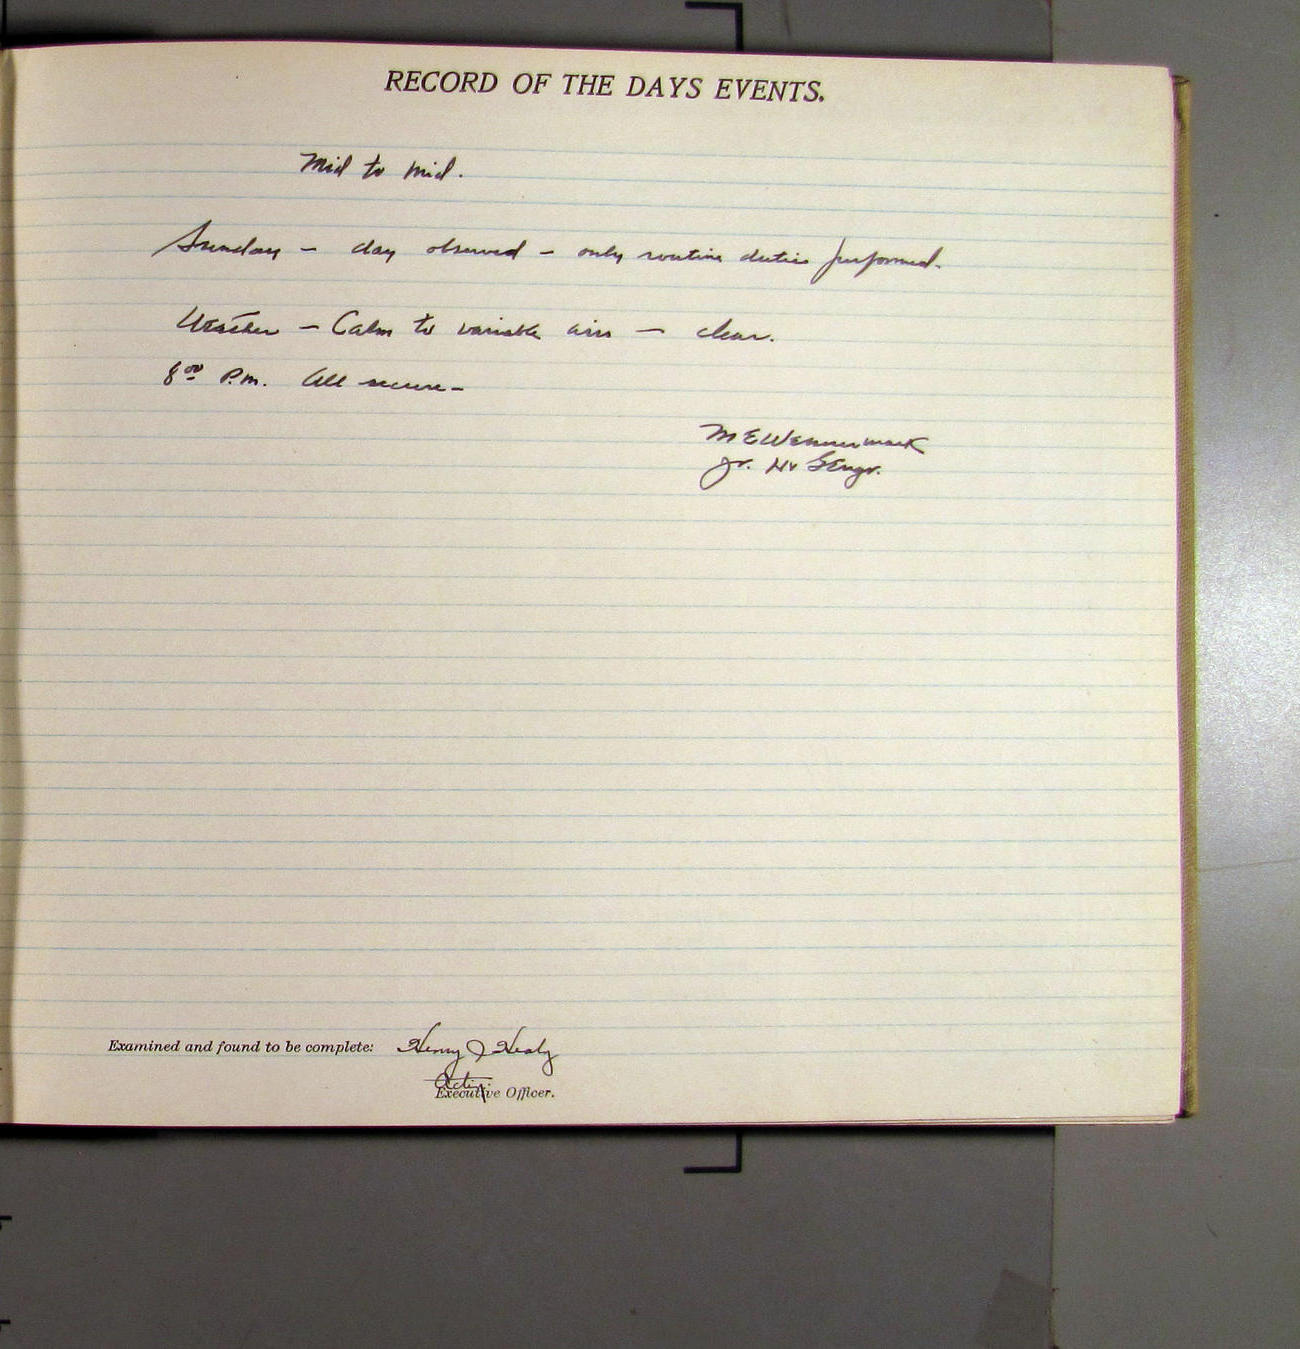 RECORD OF THE DAYS EVENTS.
Mid to Mid.
Sunday – day observed – only routine duties performed.
Weather – Calm to variable airs – clear.
8⁰⁰ P.m. All secure –
M E Wennermark
Jr. H & G Engr.
Examined and found to be complete: Henry J Healy
Acting
Executive Officer.